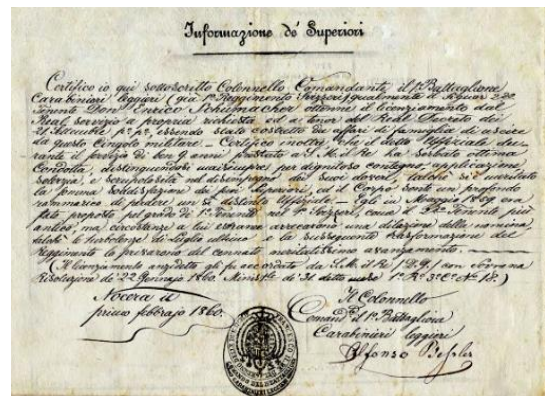 Informazione de' Superiori
Certifico io qui sottoscritto Colonnello Comandante il 1º Battaglione
Carabinieri leggieri (già 1º Reggimento Svizzeri) qualmente il Signor 2do
Tenente Don Enrico Schumacher ottenne il licenziamento dal
Real servizio a propria richiesta ed a tenor del Real Decreto dei
21 Settembre p.º p.º, essendo stato costretto da affari di famiglia di uscire
da questo Cingolo militare. - Certifico inoltre, che il detto Uffiziale du-
rante il servizio di ben 9 anni prestato a S. M. il Re ha serbato ottima
Condotta, distinguendosi maisempre per dignitoso contegno, applicazione
solerzia, e scrupolosità nel disimpegno de' suoi doveri, talchè si è meritata
la somma soddisfazione dei suoi Superiori, ed il Corpo sente un profondo
rammarico di perdere un sì distinto Uffiziale. - Egli in Maggio 1859 era
stato proposto pel grado di 1º Tenente nel 1º Svizzeri, come il 2do Tenente più
antico, ma circostanze a lui estranee arrecarono una dilazione della nomina,
talchè le turbolenze di Luglio ultimo e la susseguente trasformazione del
Reggimento lo privarono del cennato meritatissimo avanzamento.
(Il licenziamento anzidetto gli fu accordato da S. M. il Re (D. G.) con Sovrana
Risoluzione de' 22 Gennajo 1860. Minist. de' 31 detto mese 1º Rº 3º Cº Nº 18.)
Nocera il
primo febbrajo 1860.
Il Colonnello
Comand. il 1º Battaglione
Carabinieri leggieri
Alfonso Bessler